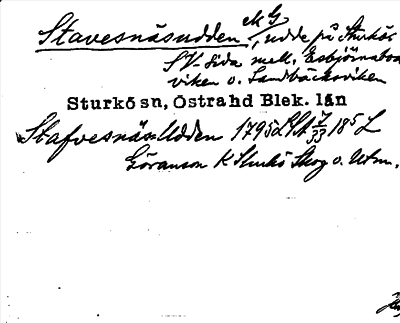 Stavesnäsudden MG, udde på Sturkös
SV-sida mell. Esbjörnabod
viken o. Sandbäcksviken
Sturkö sn, Östra hd Blek. län
Stafvesnäs-Udden 1795 33 185 L
Göranson K Sturkö Skog o. Utm.